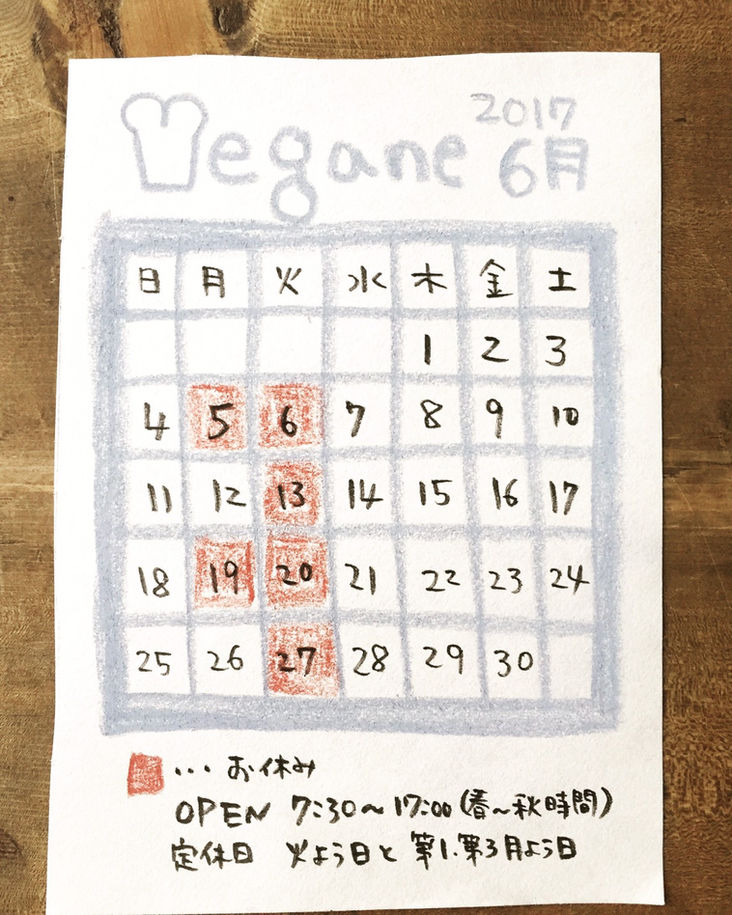 Megane
2017
6月
日 月 火 水 木 金 土
1 2 3
4 5 6 7 8 9 10
11 12 13 14 15 16 17
18 19 20 21 22 23 24
25 26 27 28 29 30
... お休み
OPEN 7:30〜17:00 (春〜秋時間)
定休日 火よう日と 第1.第3月よう日